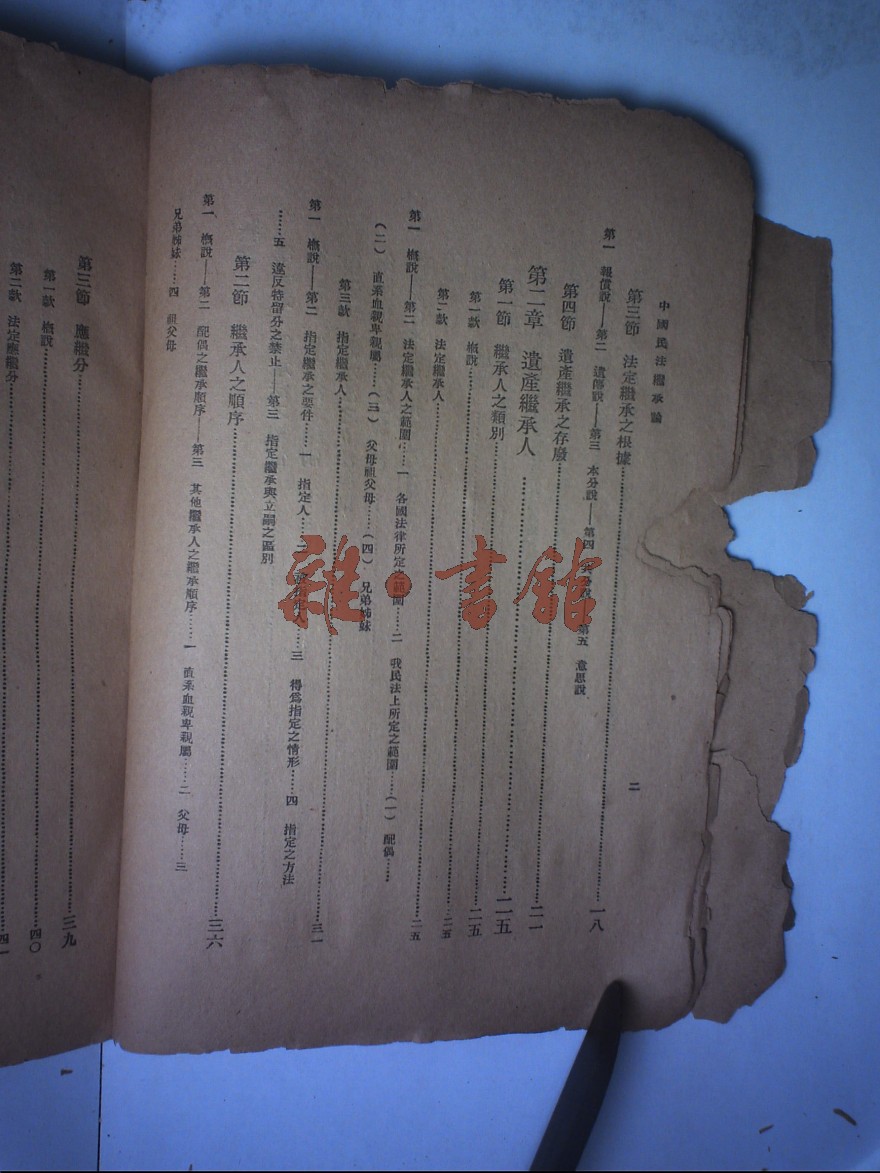 中國民法繼承論
二
第三節 法定繼承之根據……一八
第一 報償說——第二 遺傳說——第三 本分說——第四 第五 意思說
第四節 遺產繼承之存廢……二一
第二章 遺產繼承人……二五
第一節 繼承人之類別……二五
第一款 概說……二五
第二款 法定繼承人……二五
第一 概說——第二 法定繼承人之範圍……一 各國法律所定之範圍……二 我民法上所定之範圍……(一) 配偶……
(二) 直系血親卑親屬……(三) 父母祖父母……(四) 兄弟姊妹
第三款 指定繼承人……三一
第一 概說——第二 指定繼承之要件……一 指定人……二 被指定人……三 得爲指定之情形……四 指定之方法
……五 違反特留分之禁止——第三 指定繼承與立嗣之區別
第二節 繼承人之順序……三六
第一 概說——第二 配偶之繼承順序——第三 其他繼承人之繼承順序……一 直系血親卑親屬……二 父母……三
兄弟姊妹……四 祖父母
第三節 應繼分……三九
第一款 概說……四〇
第二款 法定應繼分……四一
雜·書館